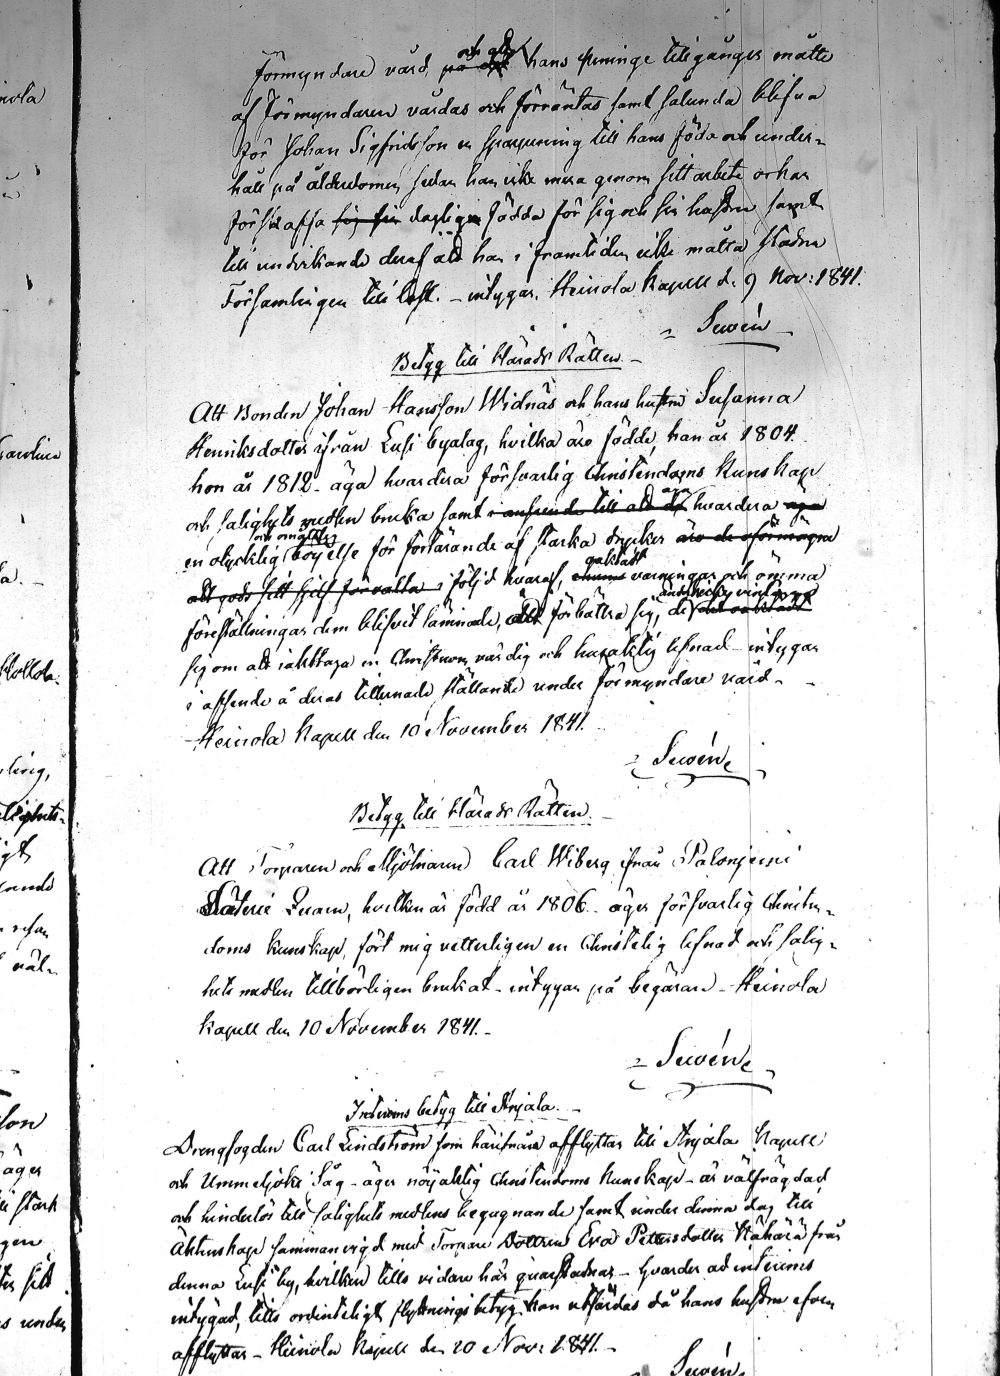 Förmyndare vård, och att hans penninge tillgångar måtte
af Förmyndaren vårdas och förräntas samt salunda blifva
för Johan Sigfridsson en sparpenning till hans föda och under-
håll på ålderdomen, sedan han icke mera genom sitt arbete orkar
förskaffa sig sin daglige födda för sig och sin hustru samt
till undvikande deraf att han i framtiden icke måtte falla
Församlingen till last. - intygar, Heinola Kapell d. 9 Nov: 1841.
Suvén
Betyg till Härads Rätten -
Att Bonden Johan Hansson Widnäs och hans hustru Susanna
Henriksdotter ifrån Lusi byalag, hvilka äro födde, han år 1804.
hon år 1812 - äga hvardera försvarlig Christendoms kunskap
och salighets medlen bruka samt i anseende till att af hvardera äga
och omåttlig
en olycklig böyelse för förtärande af starka drycker äro de oförmögna
att gods sitt sjelf förvalta i följd hvaraf, varningar och ömma
föreställningar dem blifvit lämnade, att förbättra sig, de
sig om att iakttaga en Christnom värdig och lefnad - intygar
i afseende å deras tillernade ställande under förmyndare vård -
Heinola Kapell den 10 November 1841.
Suvén
Betyg till Härads Rätten. -
Att Torparen och Mjölnaren Carl Wiberg ifrån Palonjemi
Säterie Quarn, hvilken är född år 1806. äger försvarlig Christen-
doms kunskap, fört mig vetterligen en Christelig lefnad och salig-
hets medlen tillbörligen brukat - intygas på begäran - Heinola
Kapell den 10 November 1841. -
Suvén
Interims betyg till Anjala. -
Drengfogden Carl Lindström som härifrån afflyttar till Anjala Kapell
och Ummeljoki Såg - äger nöjaktig Christendoms kunskap - är välfrägdad
och hinderlös till salighets medlens begagnande samt under denna dag till
Äktenskap sammanvigd med Torpare Dottren Eva Pettersdotter från
denna Lusi by, hvilken tills vidare här quarstadnar - hvarder ad interims
intygad, tills ordenteligt flyttningsbetyg kan utfärdas då hans hustru efven
afflyttar - Heinola Kapell den 20 Nov: 1841. -
Suvén